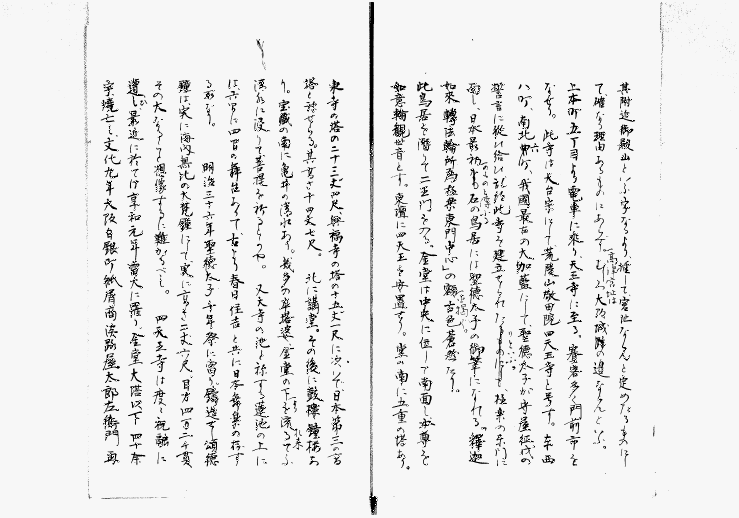 其附近御殿山といふ字なるより、推して宮址ならんと定めたるものにし
て、確な理由あるものにあらず。むしろ大阪城跡の辺ならんといふ。
高津宮址は
上本町五丁目より電車に乗り天王寺に至る。賽客多く門前市を
なせり。此寺は天台宗にして荒陵山敬田院四天王寺と号す。東西
八町、南北六町、我國最古の大伽藍にして聖徳太子が守屋征伐の
誓言に從い給い此寺を建立せられたるものにして、極楽の東門に
面し、日本最初の石の鳥居には聖徳太子の御筆になれる「釋迦
如來轉法輪所當極楽東門中心」の額古色蒼然たり。
此鳥居を潜りて二王門を入る。金堂は中央に位して南面し本尊を
如意輪觀世音とす。東濱に四天王を安置せり。堂の南に五重の塔あり。
東寺の塔の二十三丈四尺、興福寺の塔の十五丈一尺に次いで日本第三の高
塔と称せらる。其高さ十四丈七尺。北に講堂、その後に鼓樓、鐘樓あ
り。宝蔵の南に亀井の清水あり。幾多の卒塔婆、金堂の下より流れ来るてふ
浮水に浸して菩提を祈るとかや。又大寺の池と称する蓮池の上に
は六月に四日の舞楽ありて古より春日住吉と共に日本舞楽の存す
る所なり。明治三十六年聖徳太子千年祭に當り鑄造せる頌徳
鐘は実に海内無比の大梵鐘にして実に高さ二丈六尺、目方四万二千貫
その大なること想像するに難からざるべし。四天王寺は度々祝融に
遭し、最近に於ては享和元年雷火に罹り、金堂大塔以下四十余
宇焼亡し、文化九年大阪白銀町紙屑商淡路屋太郎左衛門再